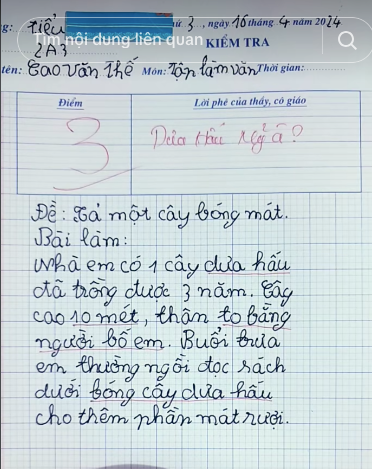 g: Tiểu thứ 3, ngày 16 tháng 4 năm 2024
Tìm nội dung liên quan
2A3 KIỂM TRA
tên: Cao Văn Thế Môn: Tập làm văn Thời gian:
Điểm Lời phê của thầy, cô giáo
3 Dưa Hấu Ngã ?
Đề: Tả một cây bóng mát.
Bài làm:
Nhà em có 1 cây dưa hấu
đã trồng được 3 năm. Cây
cao 10 mét, thân to bằng
người bố em. Buổi trưa
em thường ngồi đọc sách
dưới bóng cây dưa hấu
cho thêm phần mát rượi.